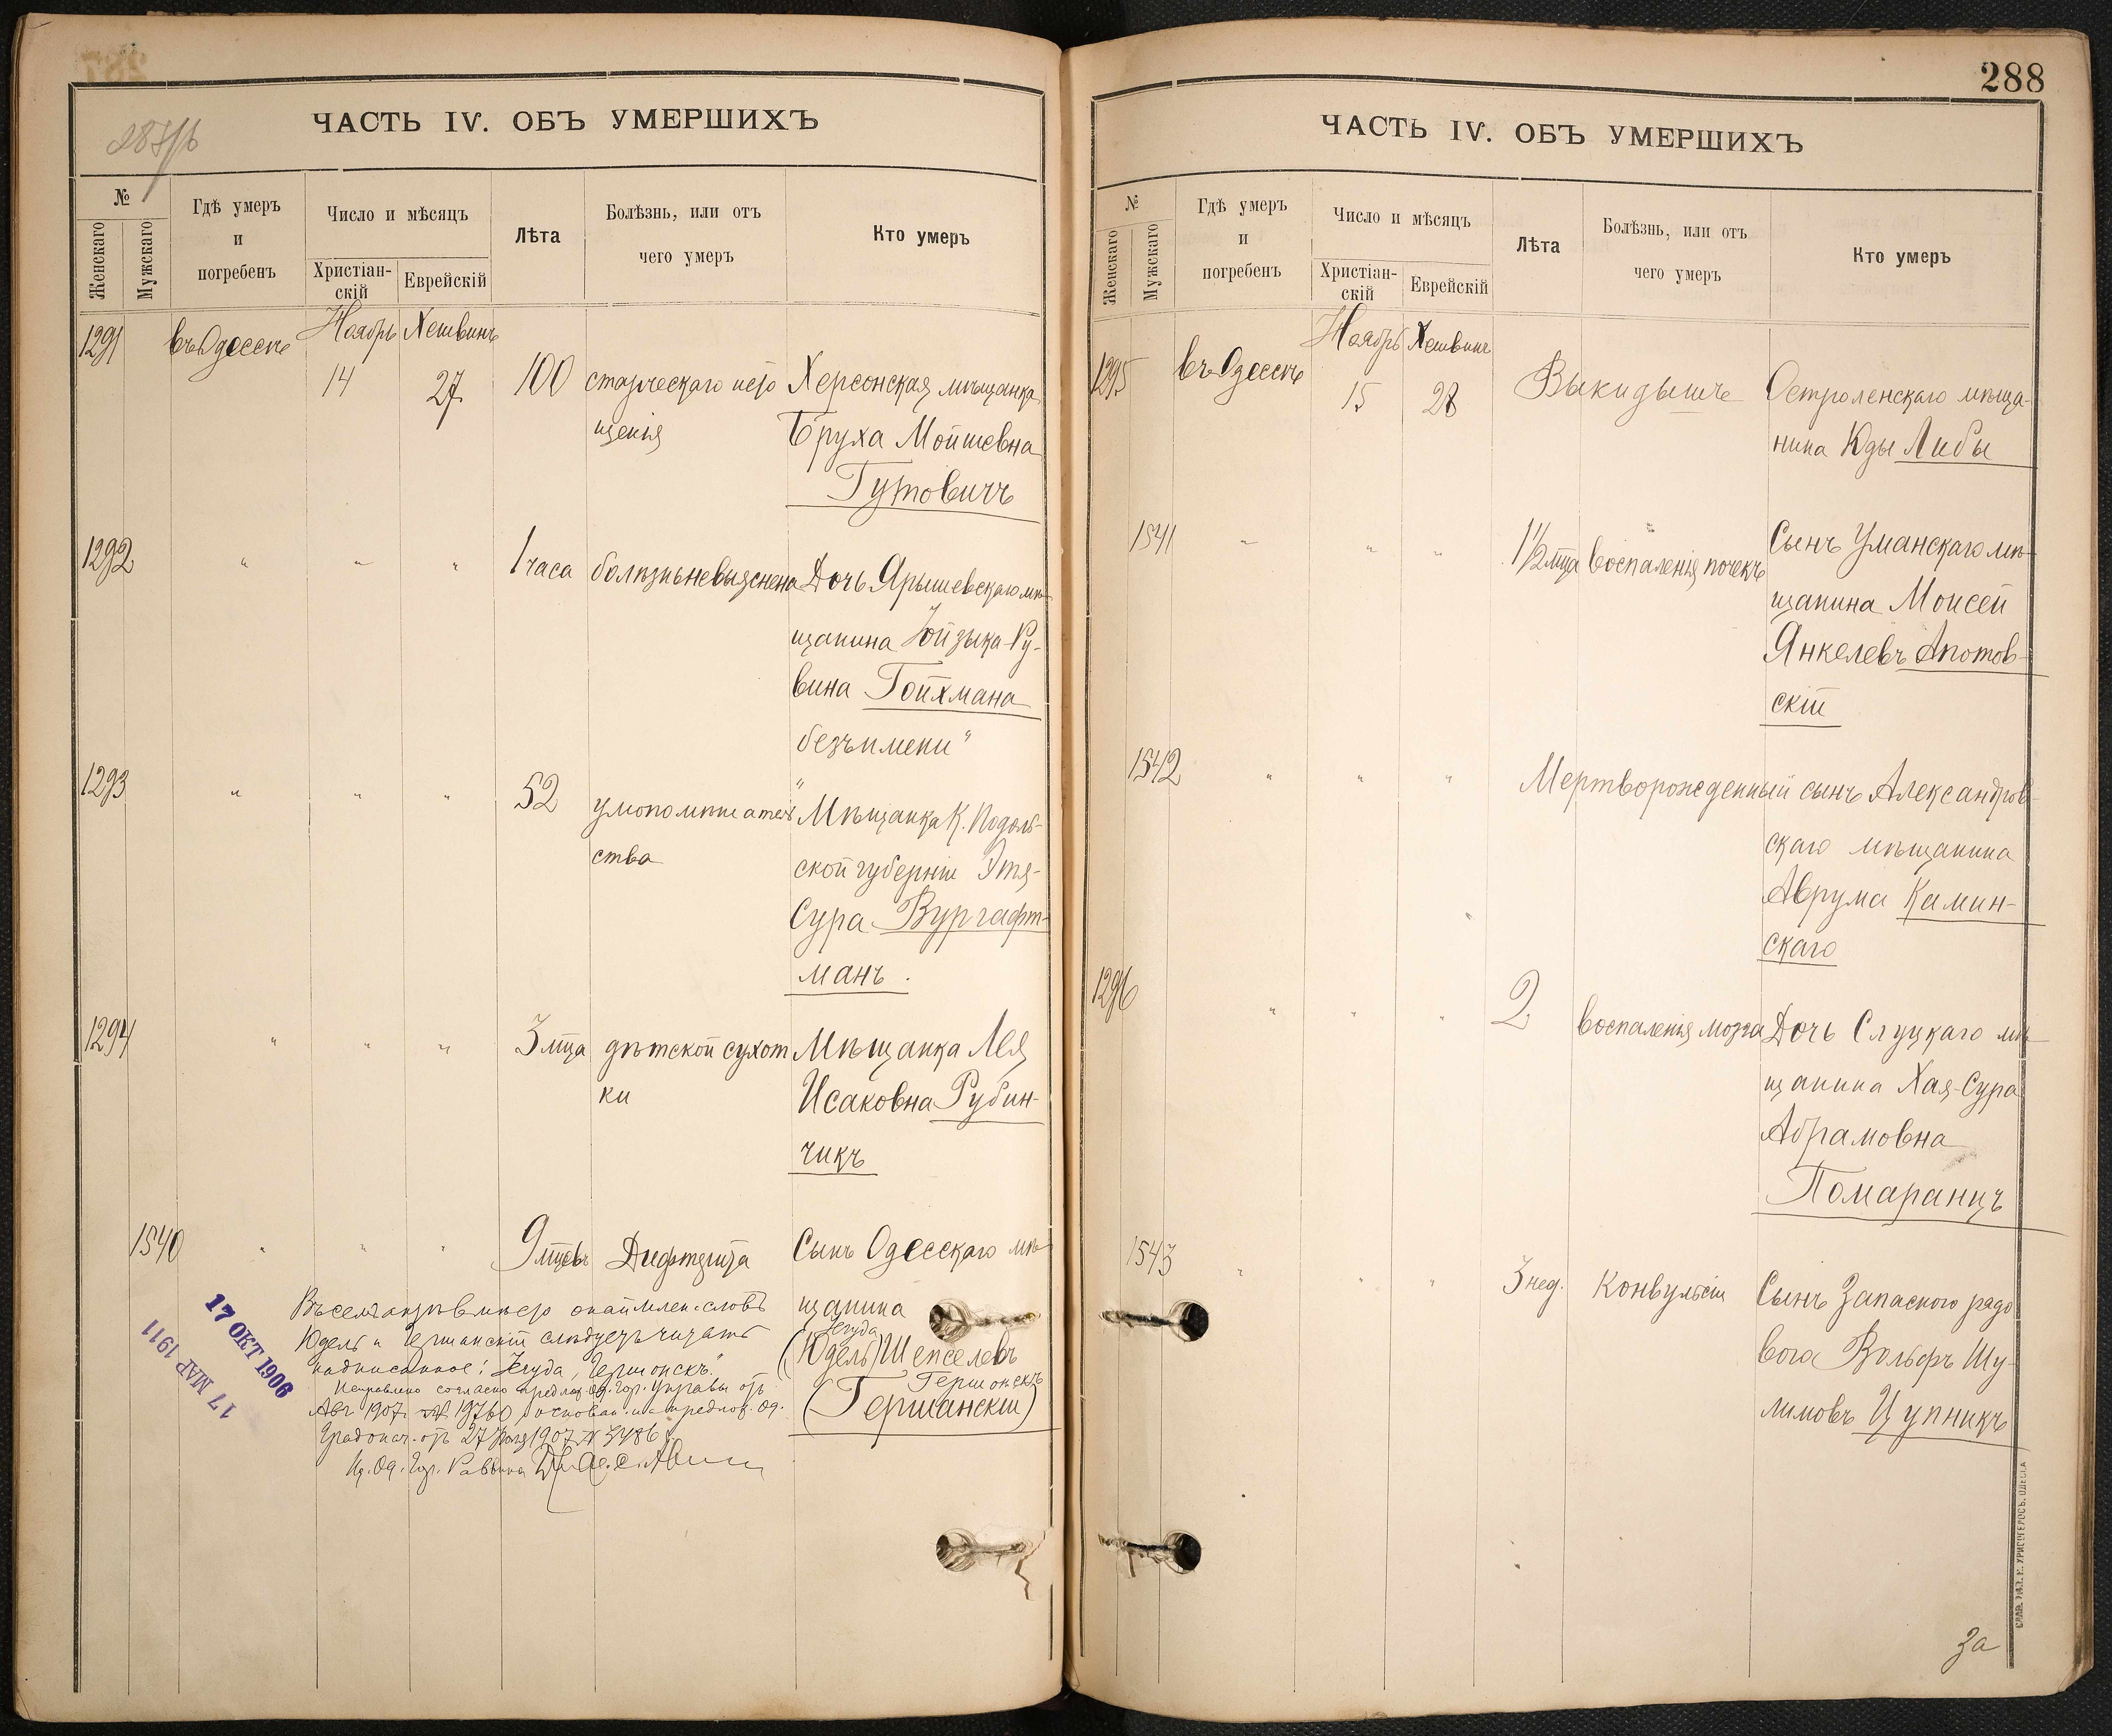 ЧАСТЬ IV. ОБЪ УМЕРШИХЪ
№
Женскаго
Мужскаго
Гдѣ умеръ
и
погребенъ
Число и мѣсяцъ
Христіан-
скій
Еврейскій
Лѣта
Болѣзнь, или отъ
чего умеръ
Кто умеръ
1291 въ Одессѣ Ноябрь Хешвинъ
14 27 100 старческаго исто Херсонская мѣщанка
щенія Бруха Мойшевна
Гутовичъ
1292 " " " 1 часа болѣзнь не выяснена Дочь Ярышевскаго мѣ-
щанина Ру-
вина Гойхмана
безъ имени"
1293 " " " 52 умопомѣшатель Мѣщанка К. Подоль-
ства ской губерніи Этя-
Сура Вургафт-
манъ.
1294 " " " 3 мца дѣтской сухот Мѣщанка Лея
ки Исаковна Рубин-
чикъ
1540 " " " 9 мцевъ Дифтерита Сынъ Одесскаго мѣ-
щанина
Іегуда
(Юдель) Шепселевъ
Гершонскъ
(Гершанскій)
Въ семъ актѣ вмѣсто словъ
Юдель и Гершанскій слѣдуетъ читать
надписанное: Іегуда, Гершонскъ".
Исправлено согласно предлож. Од. Гор. Управы отъ
Авг 1907 № 19760 основан. на предлож. Од.
Градонач. отъ 27 1907 № 3486
Од. Гор. Раввина
17 ОКТ 1906
17 МАР 1911
288
ЧАСТЬ IV. ОБЪ УМЕРШИХЪ
№
Женскаго
Мужскаго
Гдѣ умеръ
и
погребенъ
Число и мѣсяцъ
Христіан-
скій
Еврейскій
Лѣта
Болѣзнь, или отъ
чего умеръ
Кто умеръ
1295 въ Одессѣ Ноябрь Хешвинъ
15 28 Выкидышъ Остроленскаго мѣща-
нина Юды Либы
1541 " " " 1 1/2 мца воспаленія почекъ Сынъ Уманскаго мѣ-
щанина Моисей
Янкелевъ Апотов-
скій
1542 " " " Мертворожденный сынъ Александров-
скаго мѣщанина
Аврума Камин-
скаго
1296 " " " 2 воспаленія мозга Дочь Слуцкаго мѣ-
щанина Хая-Сура
Абрамовна
Помаранцъ
1543 " " " 3 нед. Конвульсіи Сынъ Запасного рядо
вого Вольфъ Шу-
лимовъ Цупникъ
За